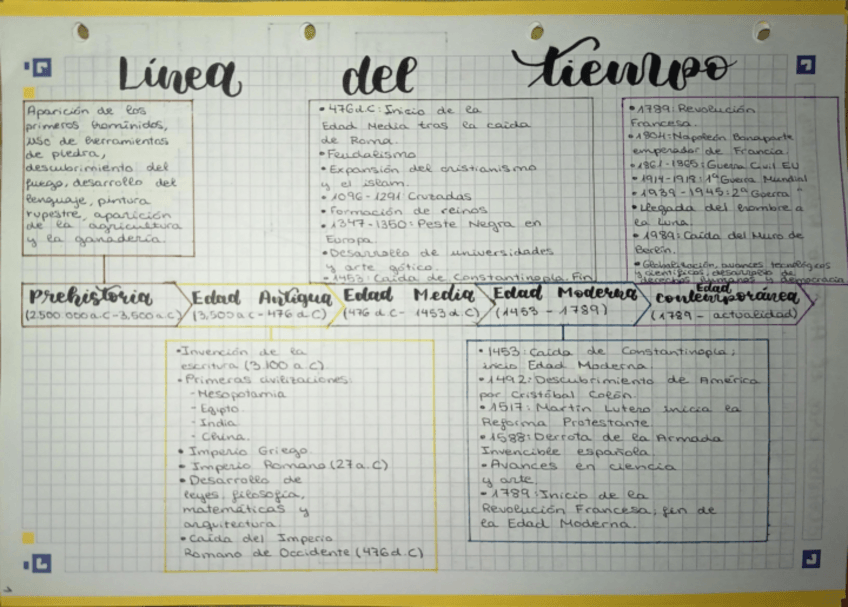 Línea del tiempo
Aparición de los
primeros homínidos,
uso de herramientas
de piedra,
descubrimiento del
fuego, desarrollo del
lenguaje, pintura
rupestre, aparición
de la agricultura
y la ganadería.
• 476 d.C: Inicio de la
Edad Media tras la caída
de Roma.
• Feudalismo
• Expansión del cristianismo
y el islam.
• 1096-1291 Cruzadas
• Formación de reinos
• 1347-1350: Peste Negra en
Europa.
• Desarrollo de universidades
y arte gótico.
• 1453: Caída de Constantinopla. Fin
• 1789: Revolución
Francesa.
• 1804: Napoleón Bonaparte
emperador de Francia.
• 1861-1865: Guerra Civil EU
• 1914-1918: 1ª Guerra Mundial
• 1939-1945: 2ª Guerra "
• Llegada del hombre a
la Luna.
• 1989: Caída del Muro de
Berlín.
• Globalización, avances tecnológicos
y científicos, desarrollo de
derechos humanos y democracia
Prehistoria
(2.500.000 a.C-3.500 a.C)
Edad Antigua
(3.500 a.C-476 d.C)
Edad Media
(476 d.C- 1453 d.C)
Edad Moderna
(1453 - 1789)
Edad
Contemporánea
(1789 - actualidad)
• Invención de la
escritura (3.100 a.C)
• Primeras civilizaciones:
- Mesopotamia
- Egipto
- India
- China.
• Imperio Griego
• Imperio Romano (27 a.C)
• Desarrollo de
leyes, filosofía,
matemáticas y
arquitectura.
• Caída del Imperio
Romano de Occidente (476 d.C)
• 1453: Caída de Constantinopla,
inicio Edad Moderna
• 1492: Descubrimiento de América
por Cristóbal Colón.
• 1517: Martín Lutero inicia la
Reforma Protestante
• 1588: Derrota de la Armada
Invencible española.
• Avances en ciencia
y arte.
• 1789: Inicio de la
Revolución Francesa, fin de
la Edad Moderna.